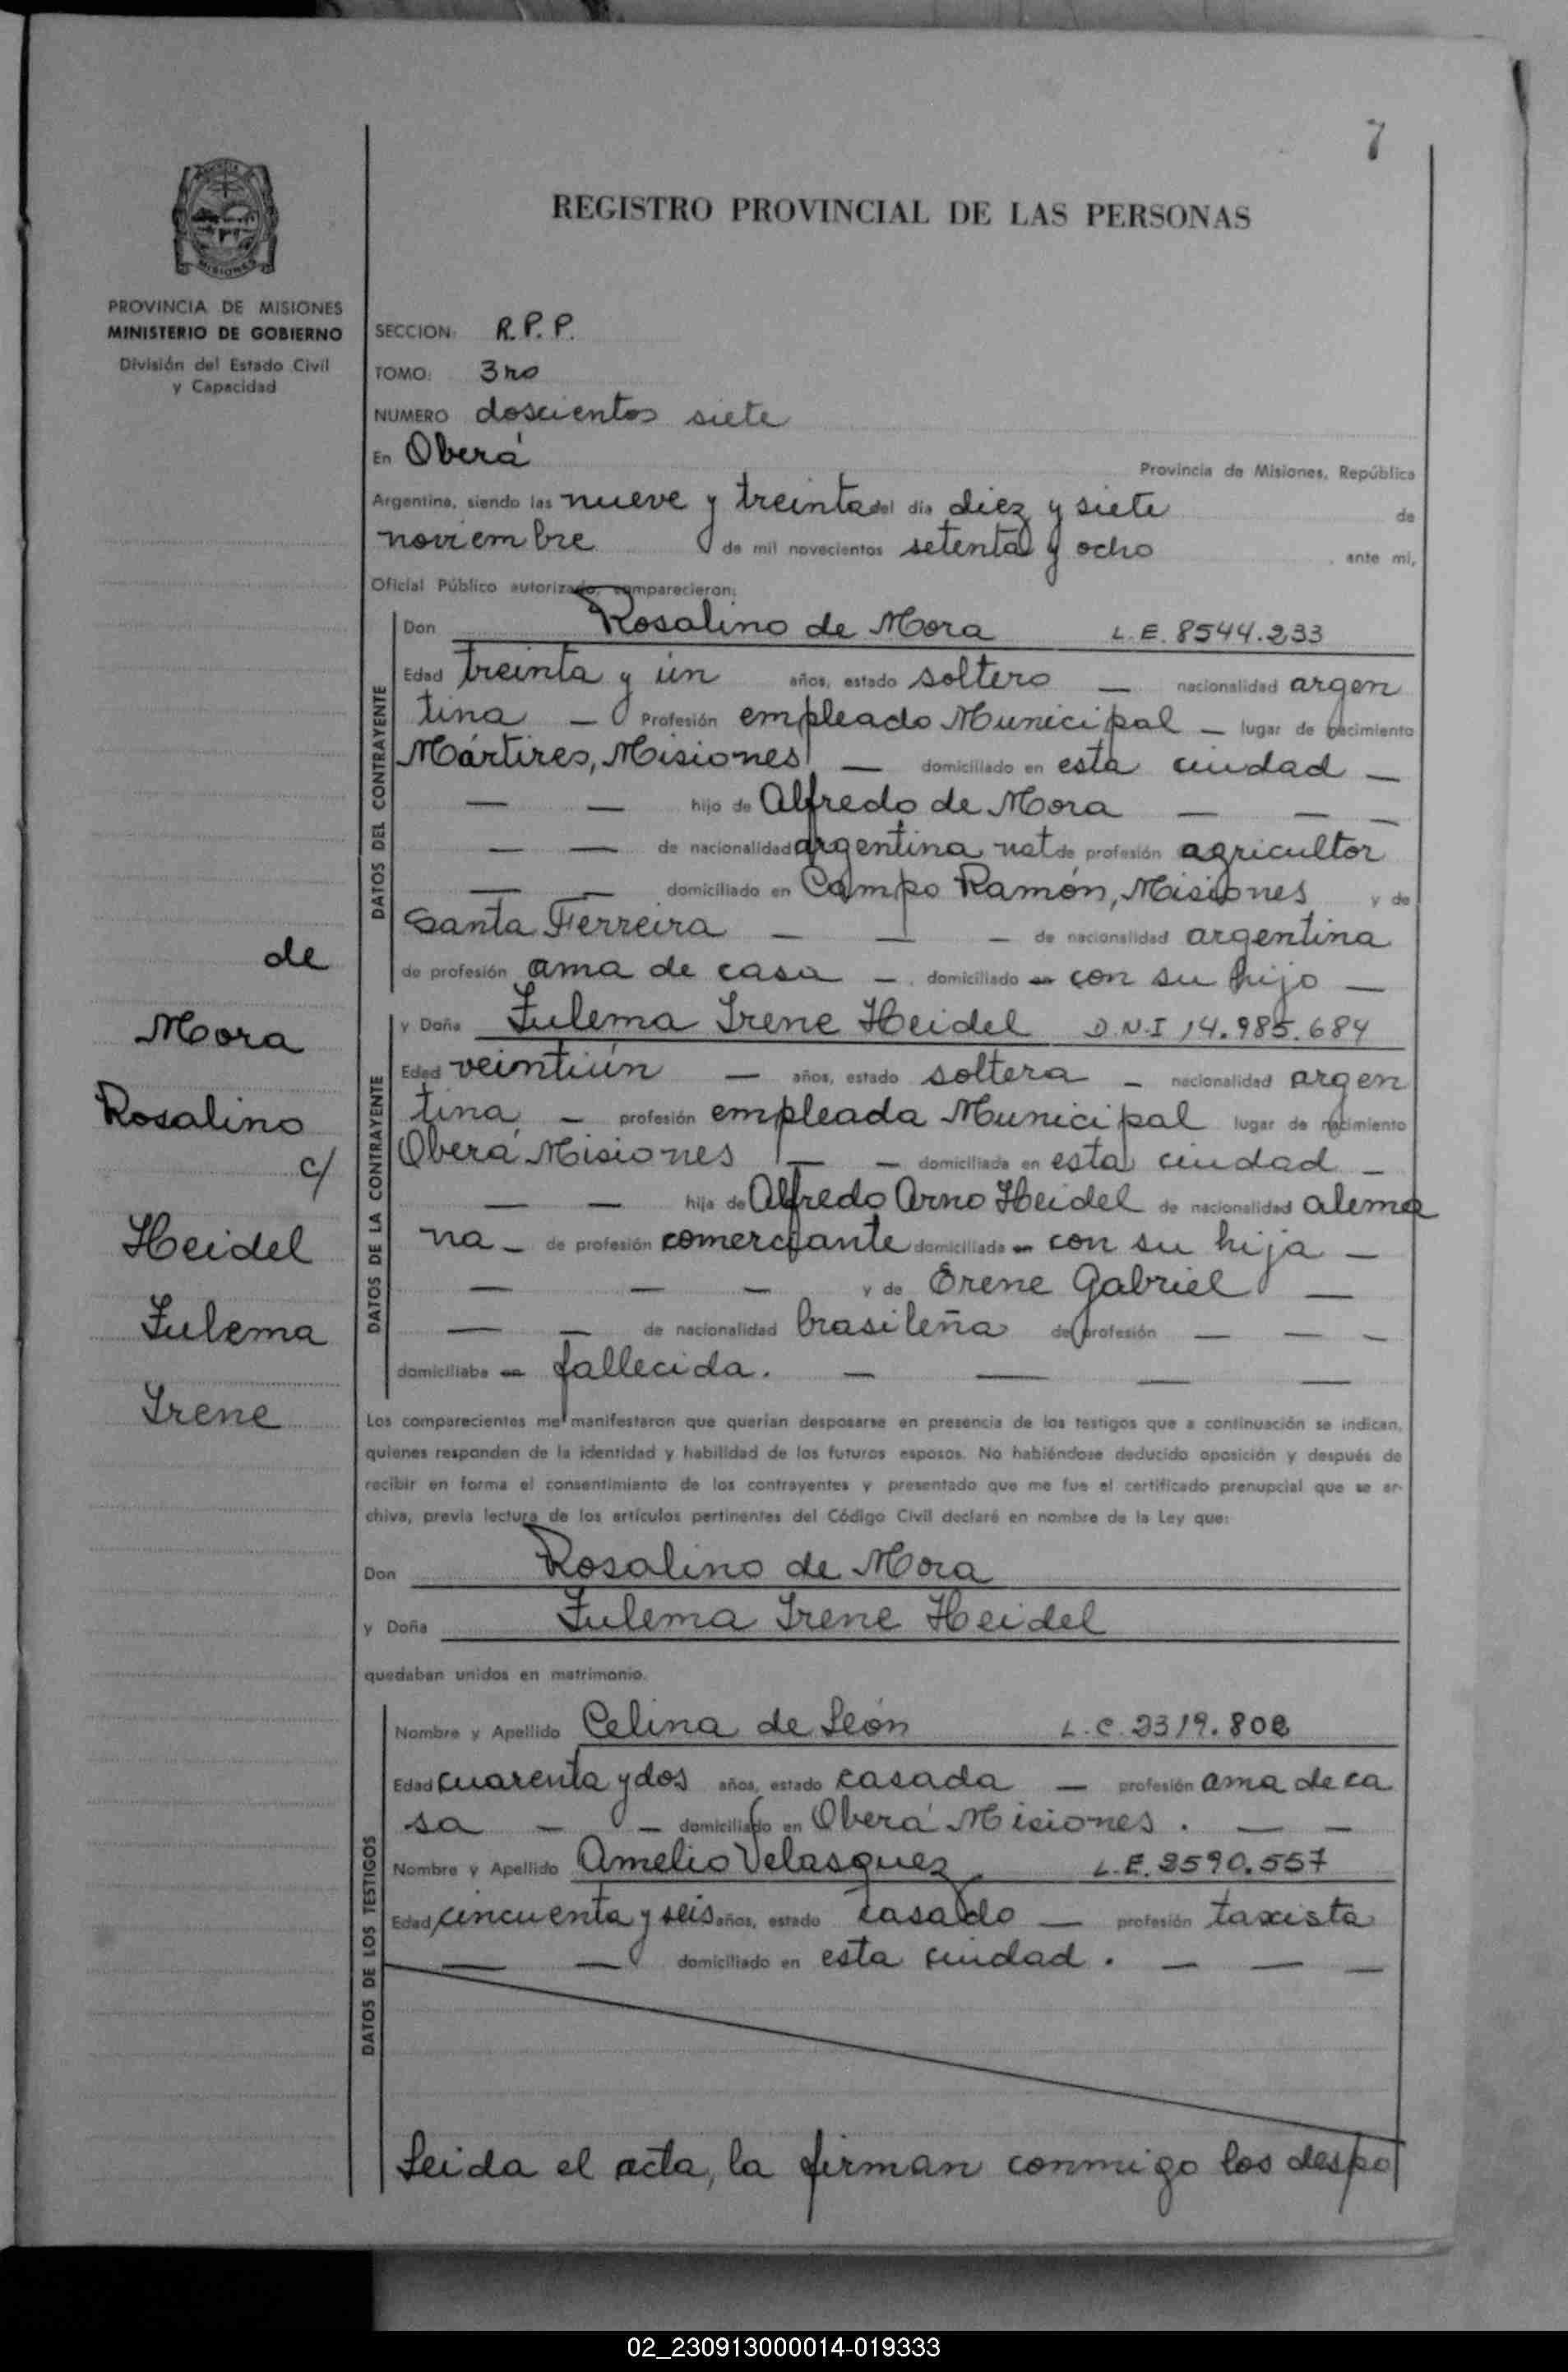 7
REGISTRO PROVINCIAL DE LAS PERSONAS
MISIONES
PROVINCIA DE MISIONES
MINISTERIO DE GOBIERNO
División del Estado Civil
y Capacidad
SECCION: R.P.P.
TOMO: 3ro
NUMERO doscientos siete
En Oberá Provincia de Misiones, República
Argentina, siendo las nueve y treinta del día diez y siete de
noviembre de mil novecientos setenta y ocho ante mi,
Oficial Público autorizado, comparecieron:
DATOS DEL CONTRAYENTE
Don Rosalino de Mora L.E. 8544.233
Edad treinta y ún años, estado soltero — nacionalidad argen
tina — Profesión empleado Municipal — lugar de nacimiento
Mártires, Misiones — domiciliado en esta ciudad —
— — hijo de Alfredo de Mora — — —
— — de nacionalidad argentina nat de profesión agricultor
— — domiciliado en Campo Ramón, Misiones y de
Santa Ferreira — — — de nacionalidad argentina
de profesión ama de casa — domiciliado en con su hijo —
DATOS DE LA CONTRAYENTE
y Doña Zulema Irene Heidel D.N.I 14.985.684
Edad veintiún — años, estado soltera — nacionalidad argen
tina — profesión empleada Municipal lugar de nacimiento
Oberá Misiones — — domiciliada en esta ciudad —
— — hija de Alfredo Arno Heidel de nacionalidad alema
na — de profesión comerciante domiciliada en con su hija —
— — — y de Erene Gabriel —
— — de nacionalidad brasileña de profesión — — —
domiciliaba en fallecida. — — — —
Los comparecientes me manifestaron que querían desposarse en presencia de los testigos que a continuación se indican,
quienes responden de la identidad y habilidad de los futuros esposos. No habiéndose deducido oposición y después de
recibir en forma el consentimiento de los contrayentes y presentado que me fue el certificado prenupcial que se ar-
chiva, previa lectura de los artículos pertinentes del Código Civil declaré en nombre de la Ley que:
Don Rosalino de Mora
y Doña Zulema Irene Heidel
quedaban unidos en matrimonio.
DATOS DE LOS TESTIGOS
Nombre y Apellido Celina de León L.C. 2319.808
Edad cuarenta y dos años, estado casada — profesión ama de ca
sa — — domiciliado en Oberá Misiones. — —
Nombre y Apellido Amelio Velasquez L.E. 2590.557
Edad cincuenta y seis años, estado casado — profesión taxista
— — domiciliado en esta ciudad. — — —
Leida el acta, la firman conmigo los despo
de
Mora
Rosalino
c/
Heidel
Zulema
Irene
02_230913000014-019333